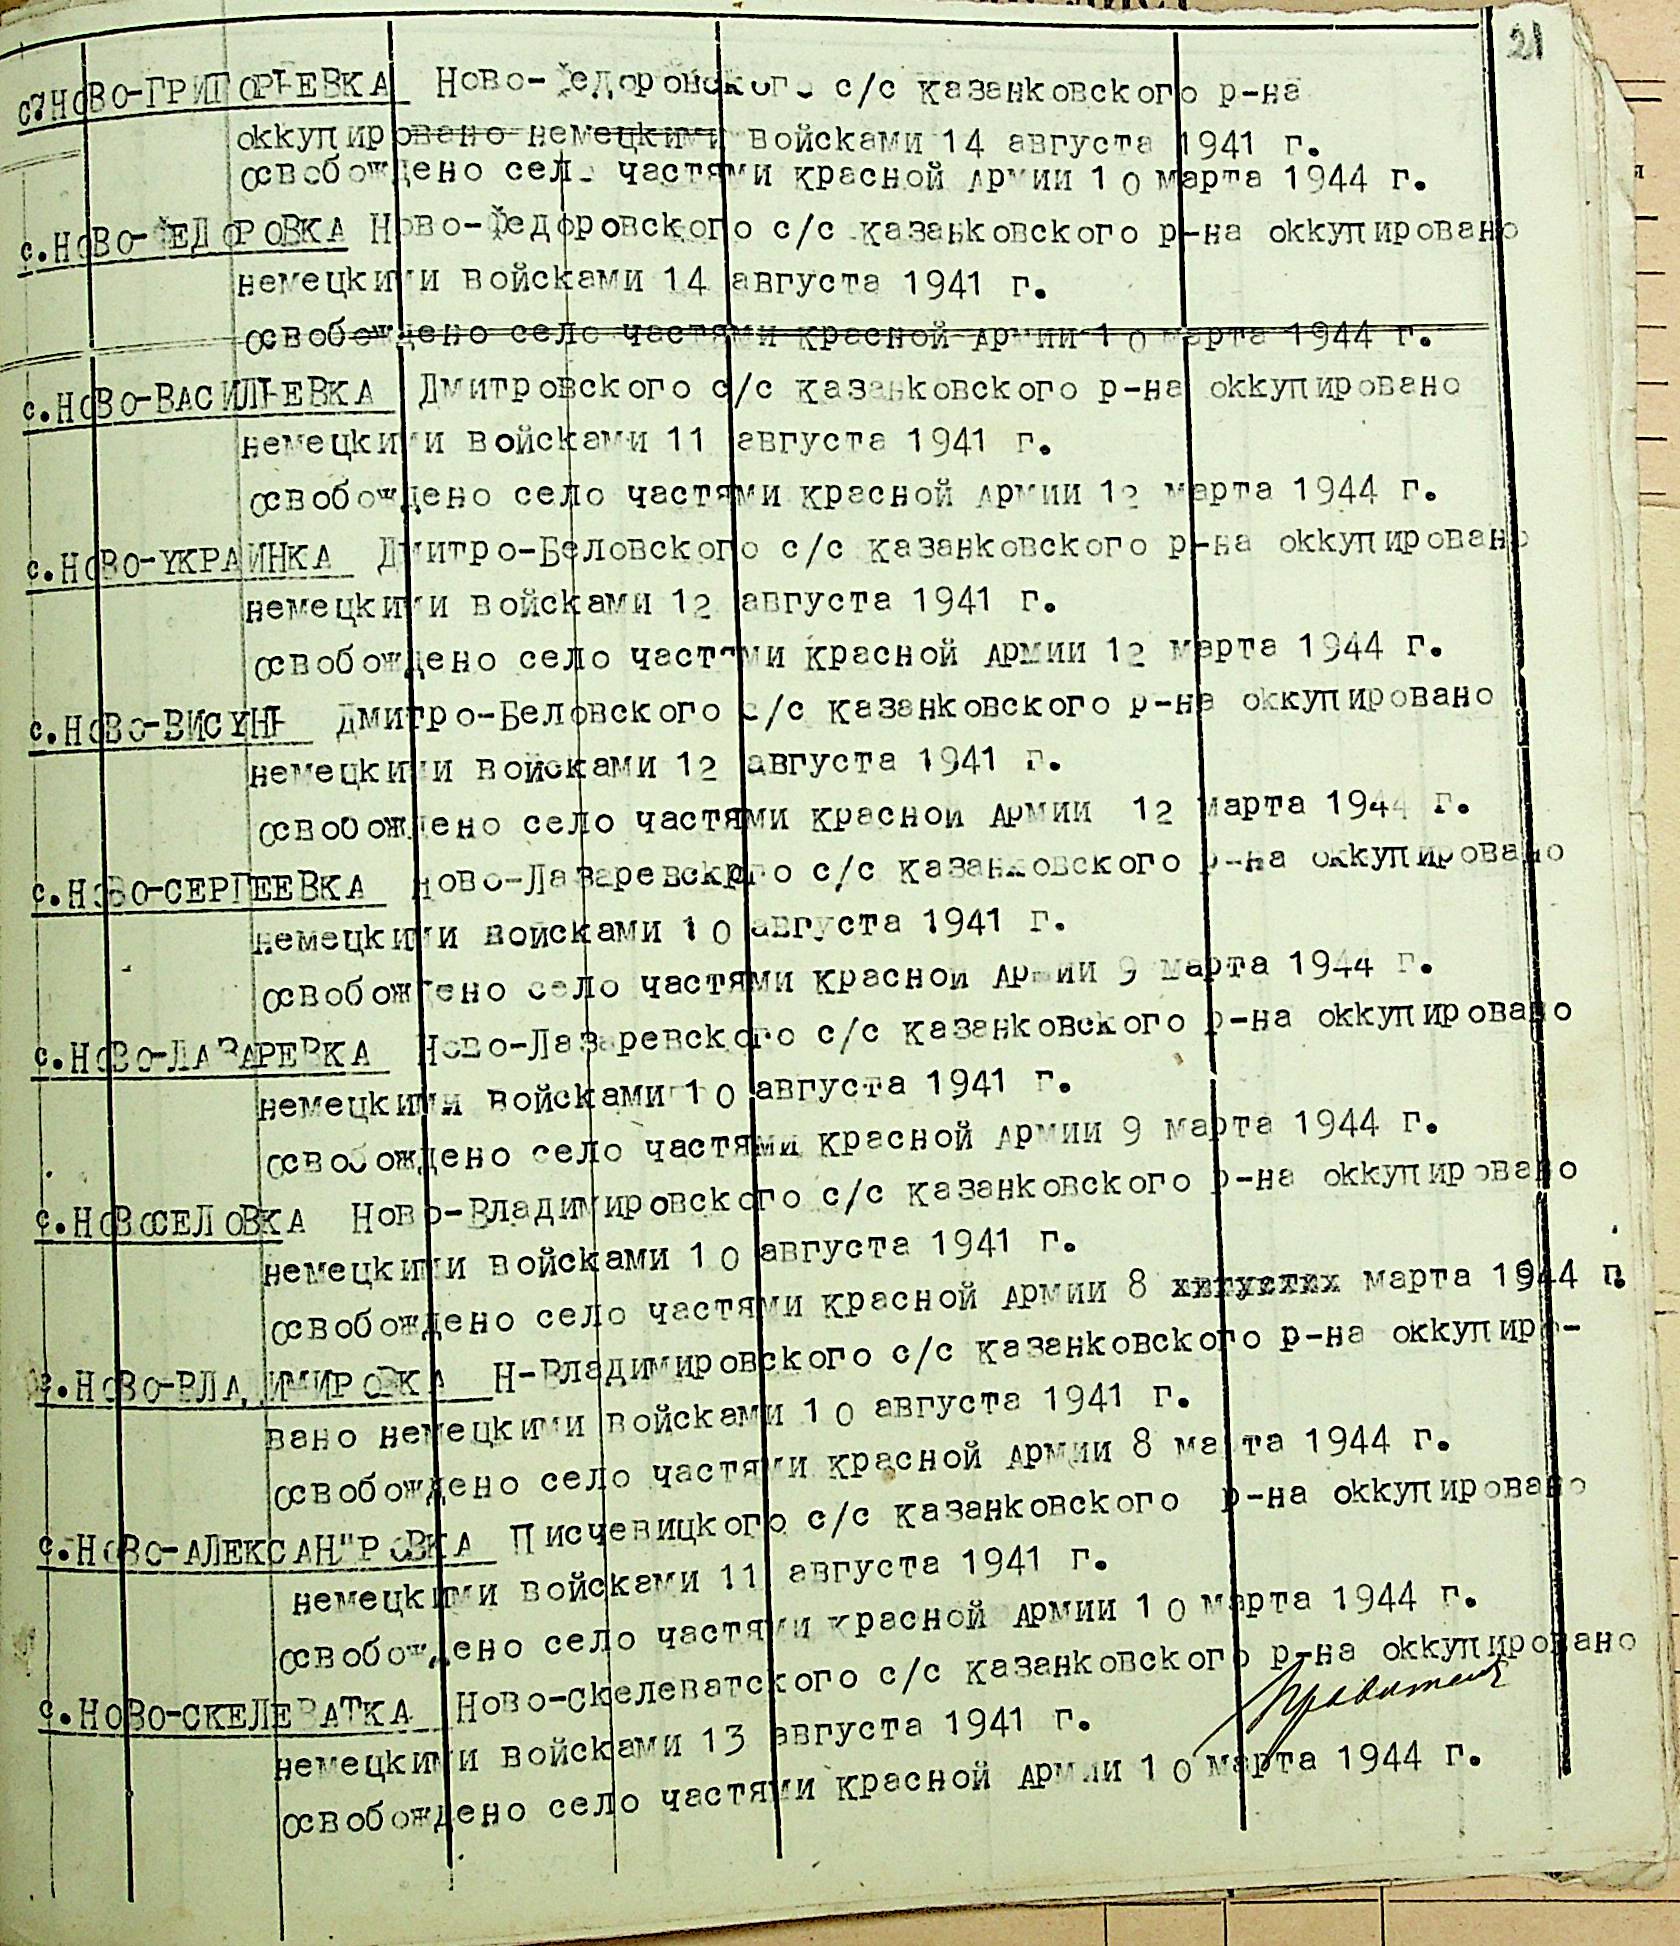 21
с.НОВО-ГРИГОРЬЕВКА Ново-Федоровского с/с Казанковского р-на
оккупировано немецкими войсками 14 августа 1941 г.
освобождено село частями красной Армии 10 марта 1944 г.
с.НОВО-ФЕДОРОВКА Ново-Федоровского с/с Казанковского р-на оккупировано
немецкими войсками 14 августа 1941 г.
освобождено село частями красной Армии 10 марта 1944 г.
с.НОВО-ВАСИЛЬЕВКА Дмитровского с/с Казанковского р-на оккупировано
немецкими войсками 11 августа 1941 г.
освобождено село частями красной Армии 12 марта 1944 г.
с.НОВО-УКРАИНКА Дмитро-Беловского с/с Казанковского р-на оккупировано
немецкими войсками 12 августа 1941 г.
освобождено село частями красной Армии 12 марта 1944 г.
с.НОВО-ВИСУНЬ Дмитро-Беловского с/с Казанковского р-на оккупировано
немецкими войсками 12 августа 1941 г.
освобождено село частями красной Армии 12 марта 1944 г.
с.НОВО-СЕРГЕЕВКА Ново-Лазаревского с/с Казанковского р-на оккупировано
немецкими войсками 10 августа 1941 г.
освобождено село частями красной Армии 9 марта 1944 г.
с.НОВО-ЛАЗАРЕВКА Ново-Лазаревского с/с Казанковского р-на оккупировано
немецкими войсками 10 августа 1941 г.
освобождено село частями красной Армии 9 марта 1944 г.
с.НОВОСЕЛОВКА Ново-Владимировского с/с Казанковского р-на оккупировано
немецкими войсками 10 августа 1941 г.
освобождено село частями красной Армии 8 марта 1944 г.
с.НОВО-ВЛАДИМИРОВКА Н-Владимировского с/с Казанковского р-на оккупиро-
вано немецкими войсками 10 августа 1941 г.
освобождено село частями красной Армии 8 марта 1944 г.
с.НОВО-АЛЕКСАНДРОВКА Писчевицкого с/с Казанковского р-на оккупировано
немецкими войсками 11 августа 1941 г.
освобождено село частями красной Армии 10 марта 1944 г.
с.НОВО-СКЕЛЕВАТКА Ново-Скелеватского с/с Казанковского р-на оккупировано
немецкими войсками 13 августа 1941 г.
освобождено село частями красной Армии 10 марта 1944 г.